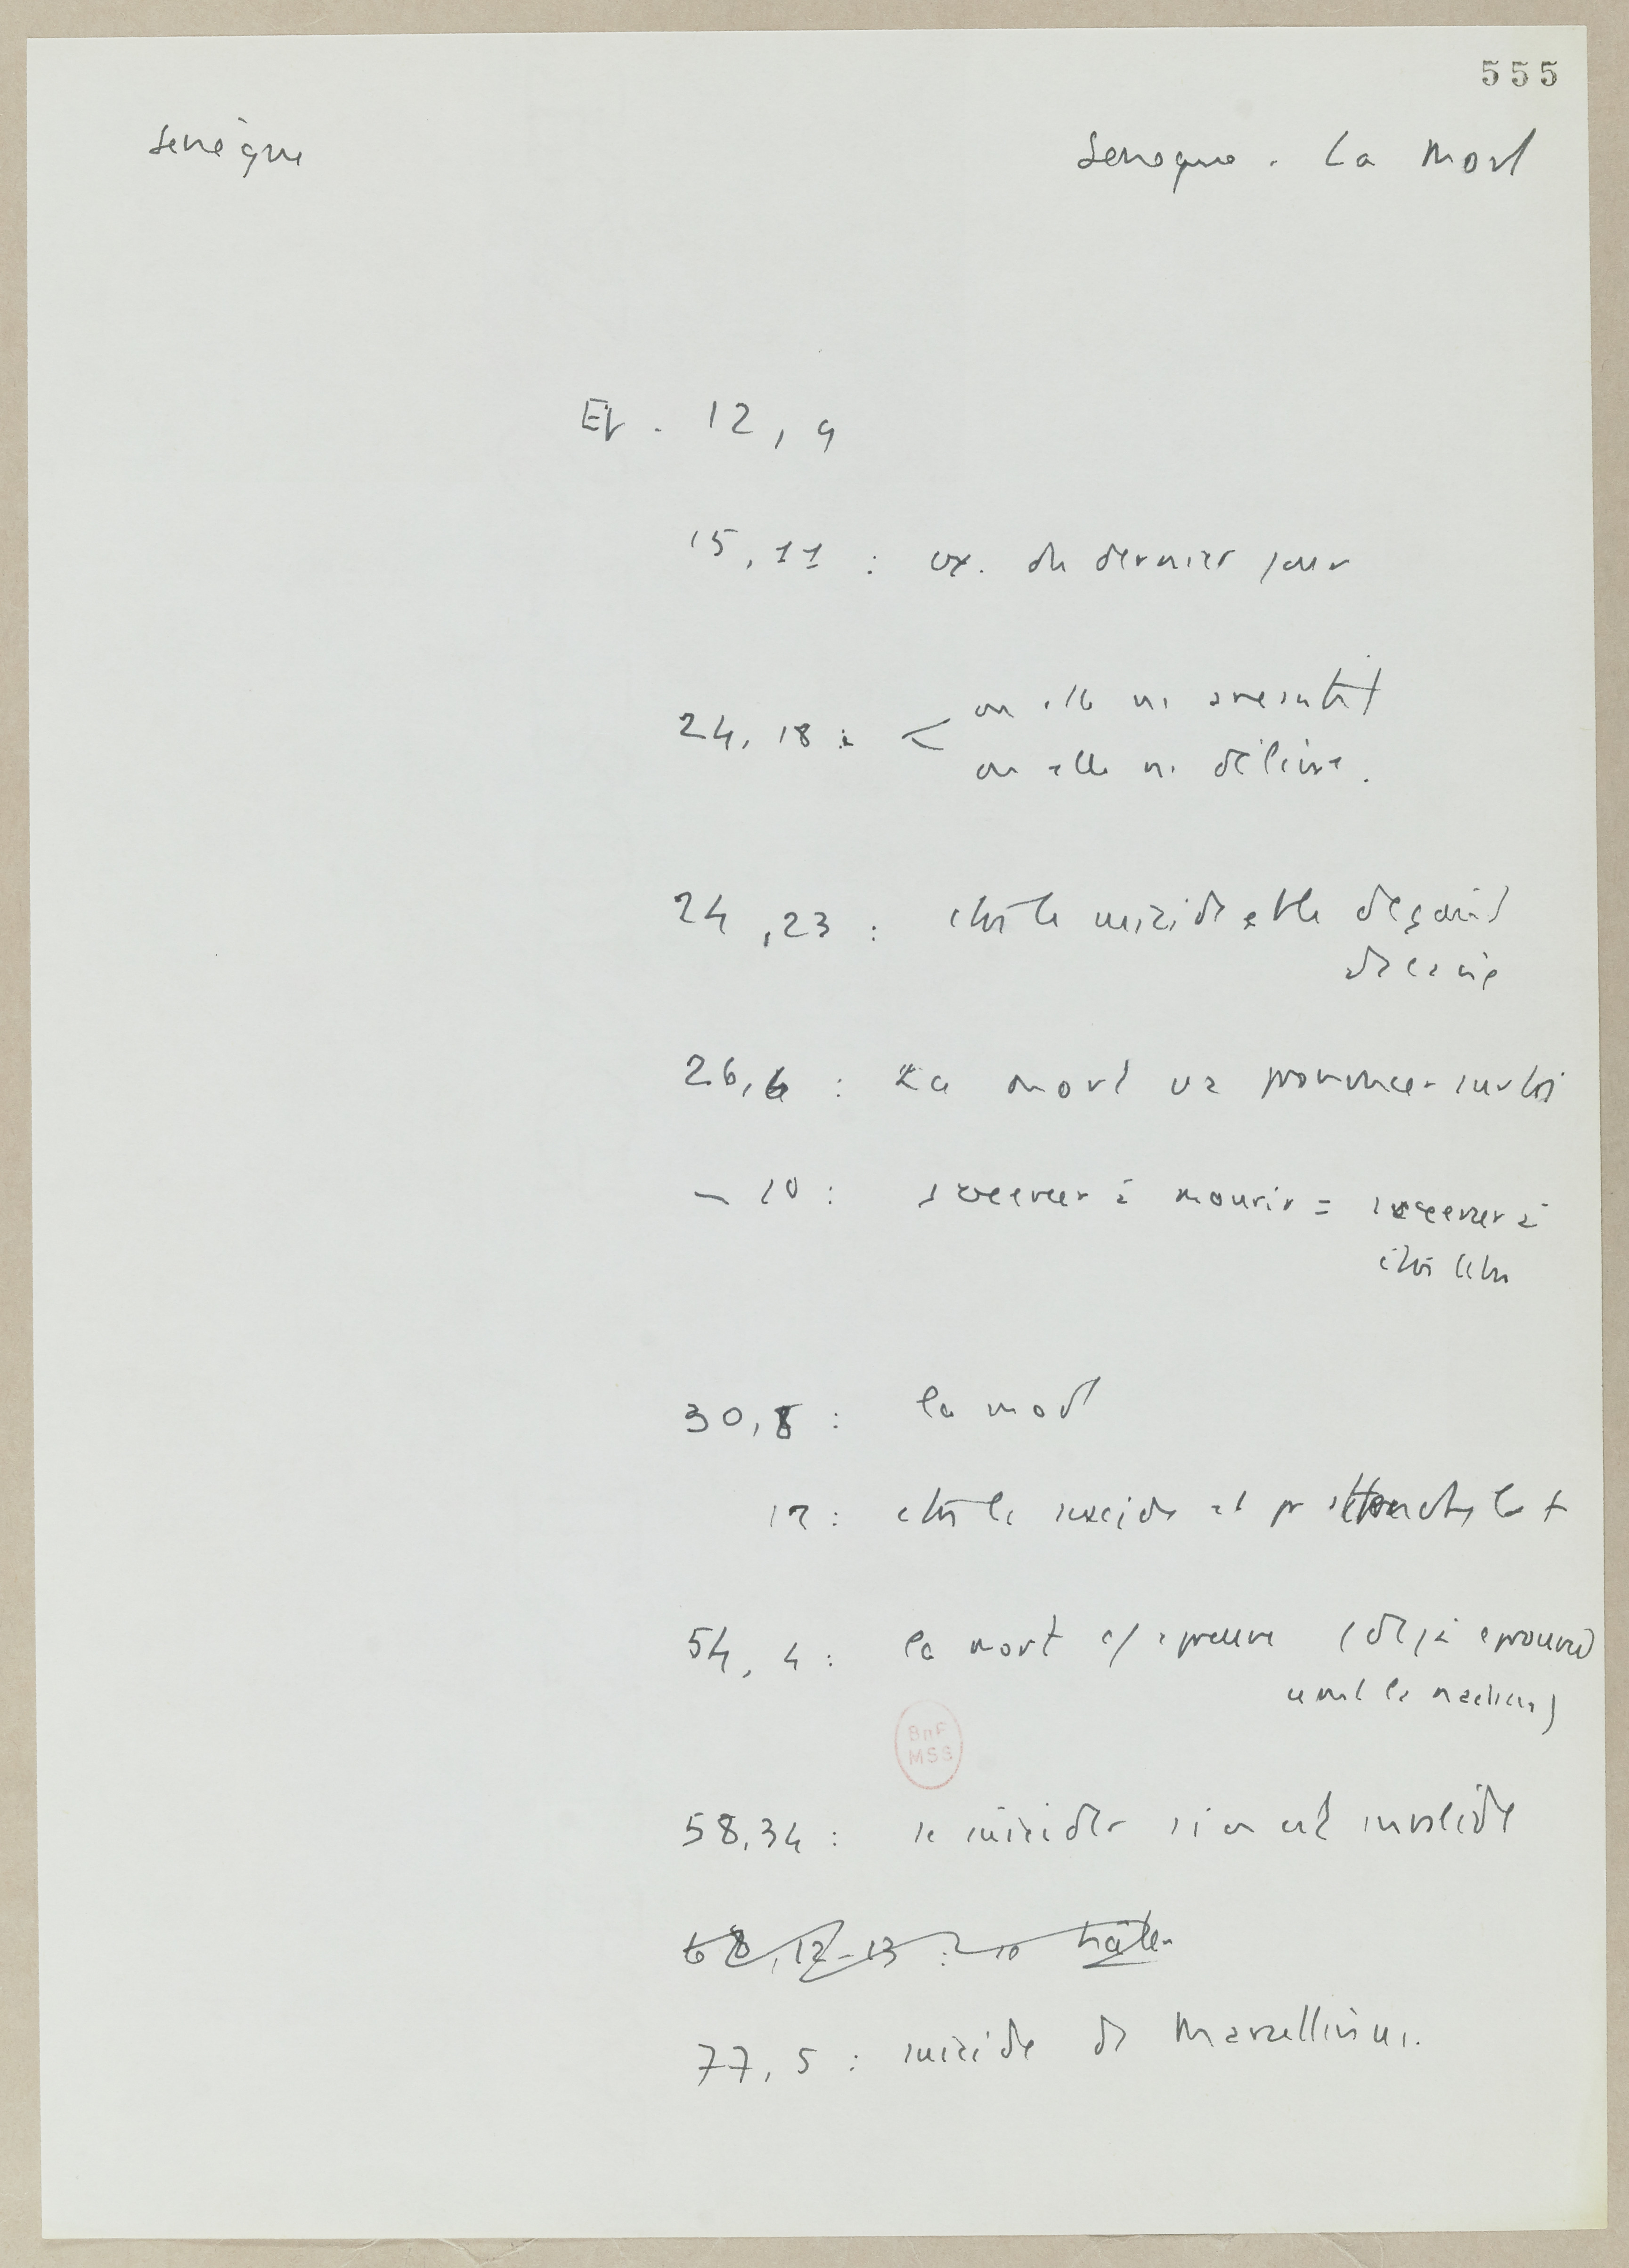 555
Sénèque
Seneque. La mort
Ep. 12, 9
15, 11 : ex. du dernier jour
24, 18 : < ou elle ns aneantit
ou elle ns délivre.
24, 23 : ctre le suicide et le dégout
de la vie
26, 6 : La mort va prononcer sur toi
— 10 : s'exercer à mourir = s'exercer à
être libre
30, 8 : la mort
12 : ctre le suicide et pr
54, 4 : la mort c/ épreuve (déjà éprouvée
avant la naissance)
58, 34 : se suicider si on est invalide
68, 12-13 :
77, 5 : suicide de Marcellinus.
BnF
MSS